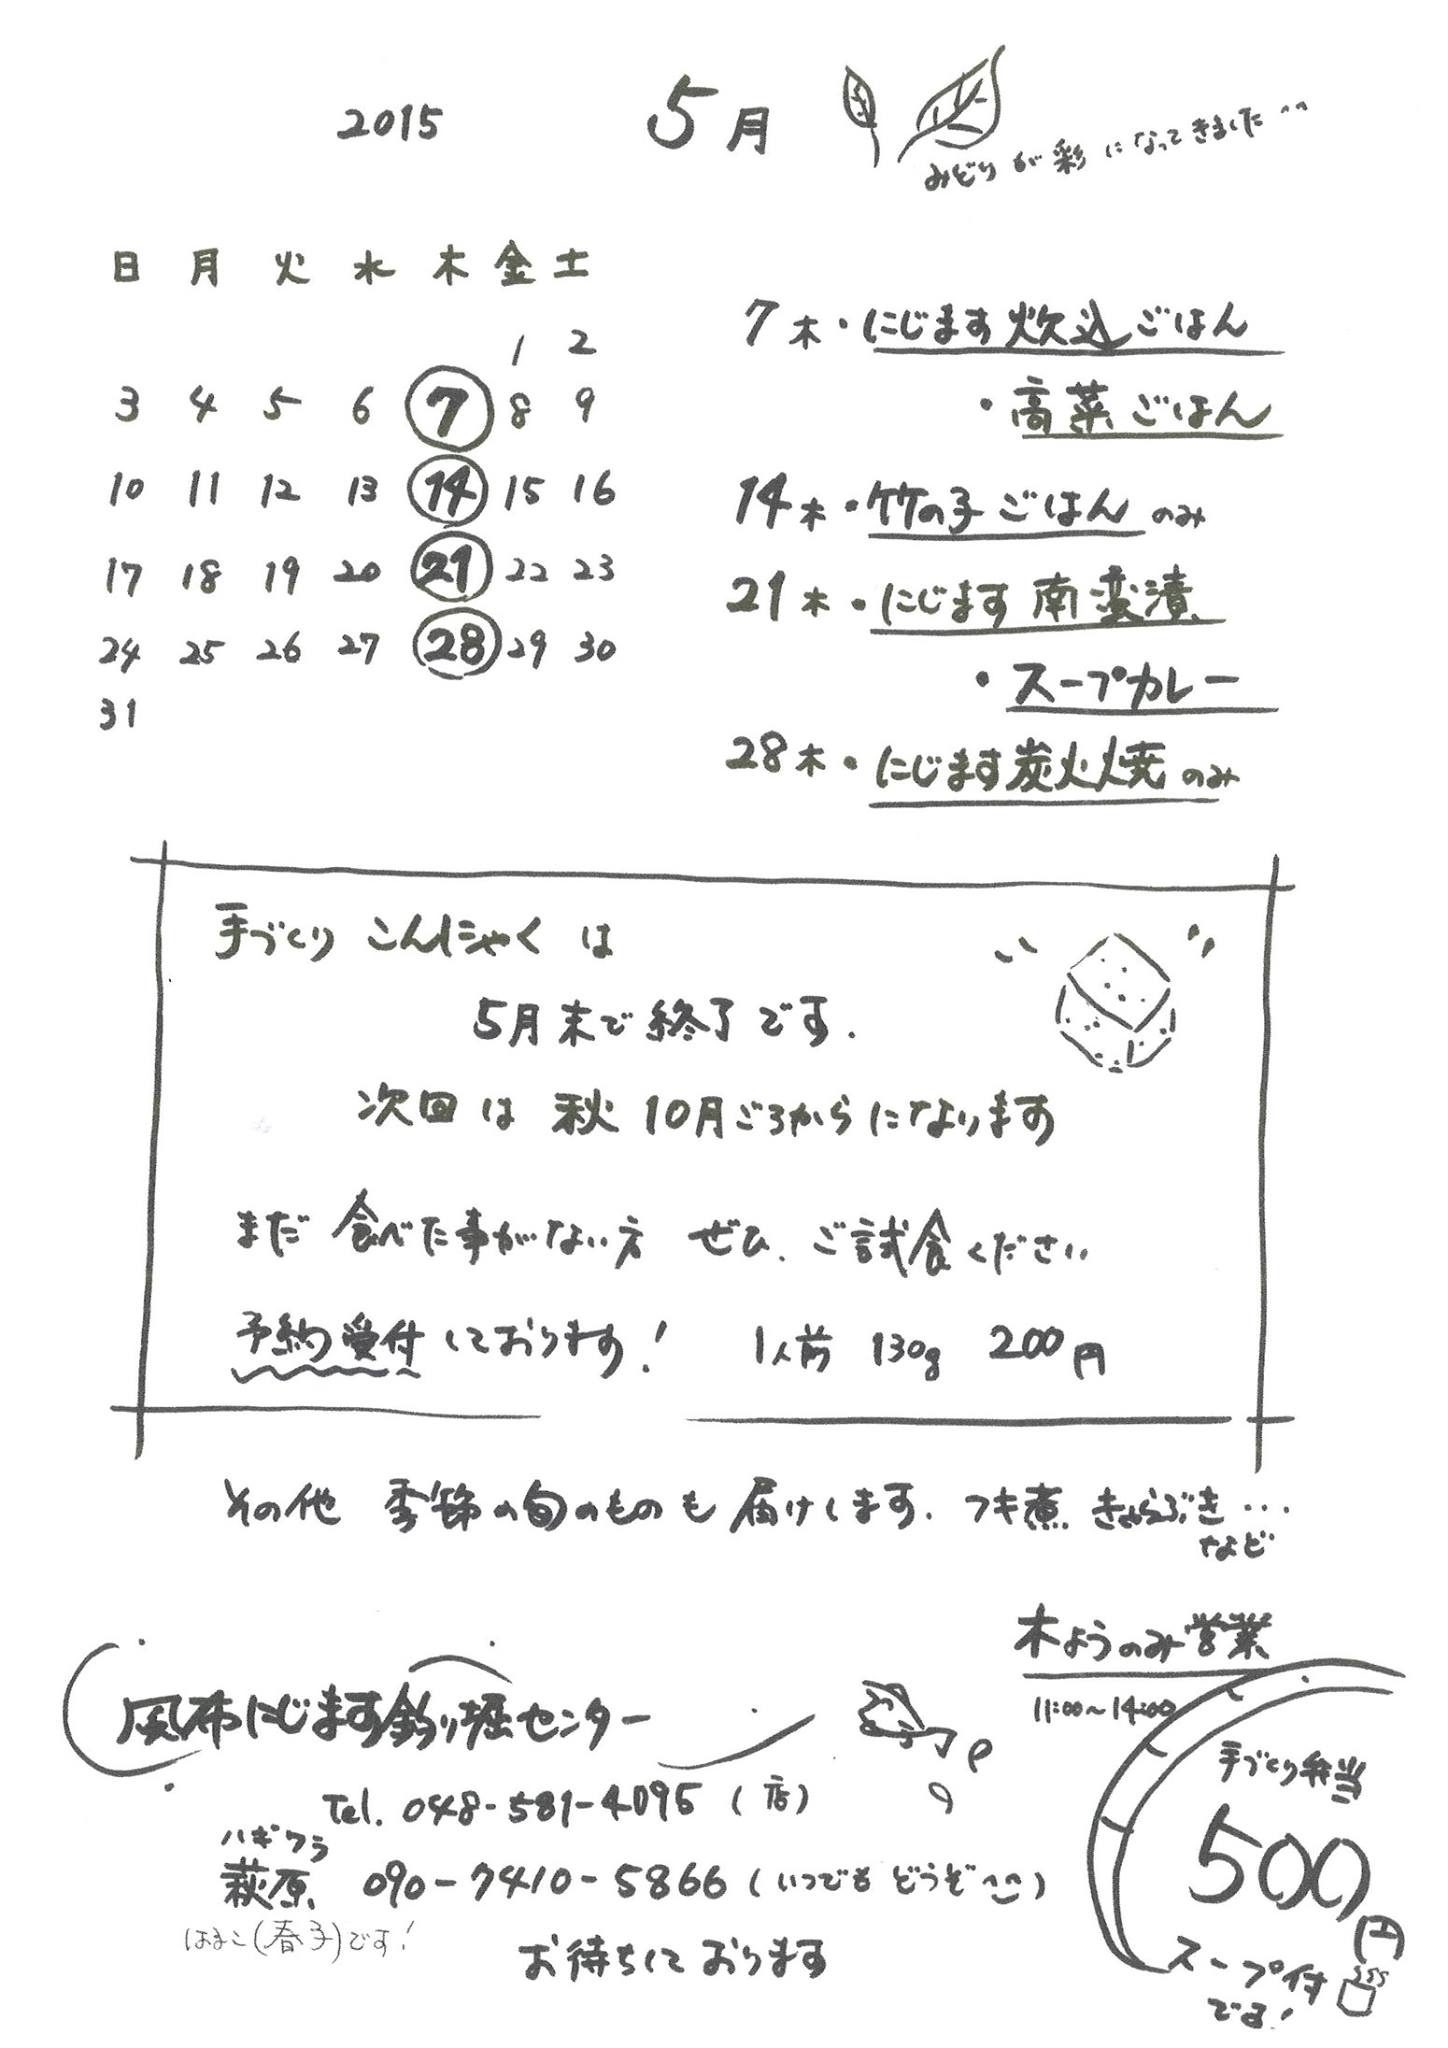 2015 5月
みどりが彩になってきました^^
日 月 火 水 木 金 土
1 2
3 4 5 6 7 8 9
10 11 12 13 14 15 16
17 18 19 20 21 22 23
24 25 26 27 28 29 30
31
7木・にじます炊込ごはん
・高菜ごはん
14木・竹の子ごはんのみ
21木・にじます南蛮漬
・スープカレー
28木・にじます炭火焼のみ
手づくりこんにゃくは
5月末で終了です.
次回は秋10月ごろからになります
まだ食べた事がない方 ぜひ、ご試食ください
予約受付しております! 1人前 130g 200円
その他 季節の旬のものも届けします. フキ煮 きゃらぶき…
など
木ようのみ営業
11:00~14:00
風布にじます釣り堀センター
Tel. 048-581-4095 (店)
ハギワラ
萩原 090-7410-5866 (いつでもどうぞ^^)
はるこ(春子)です!
お待ちしております
手づくり弁当
500
円
スープ付
です!